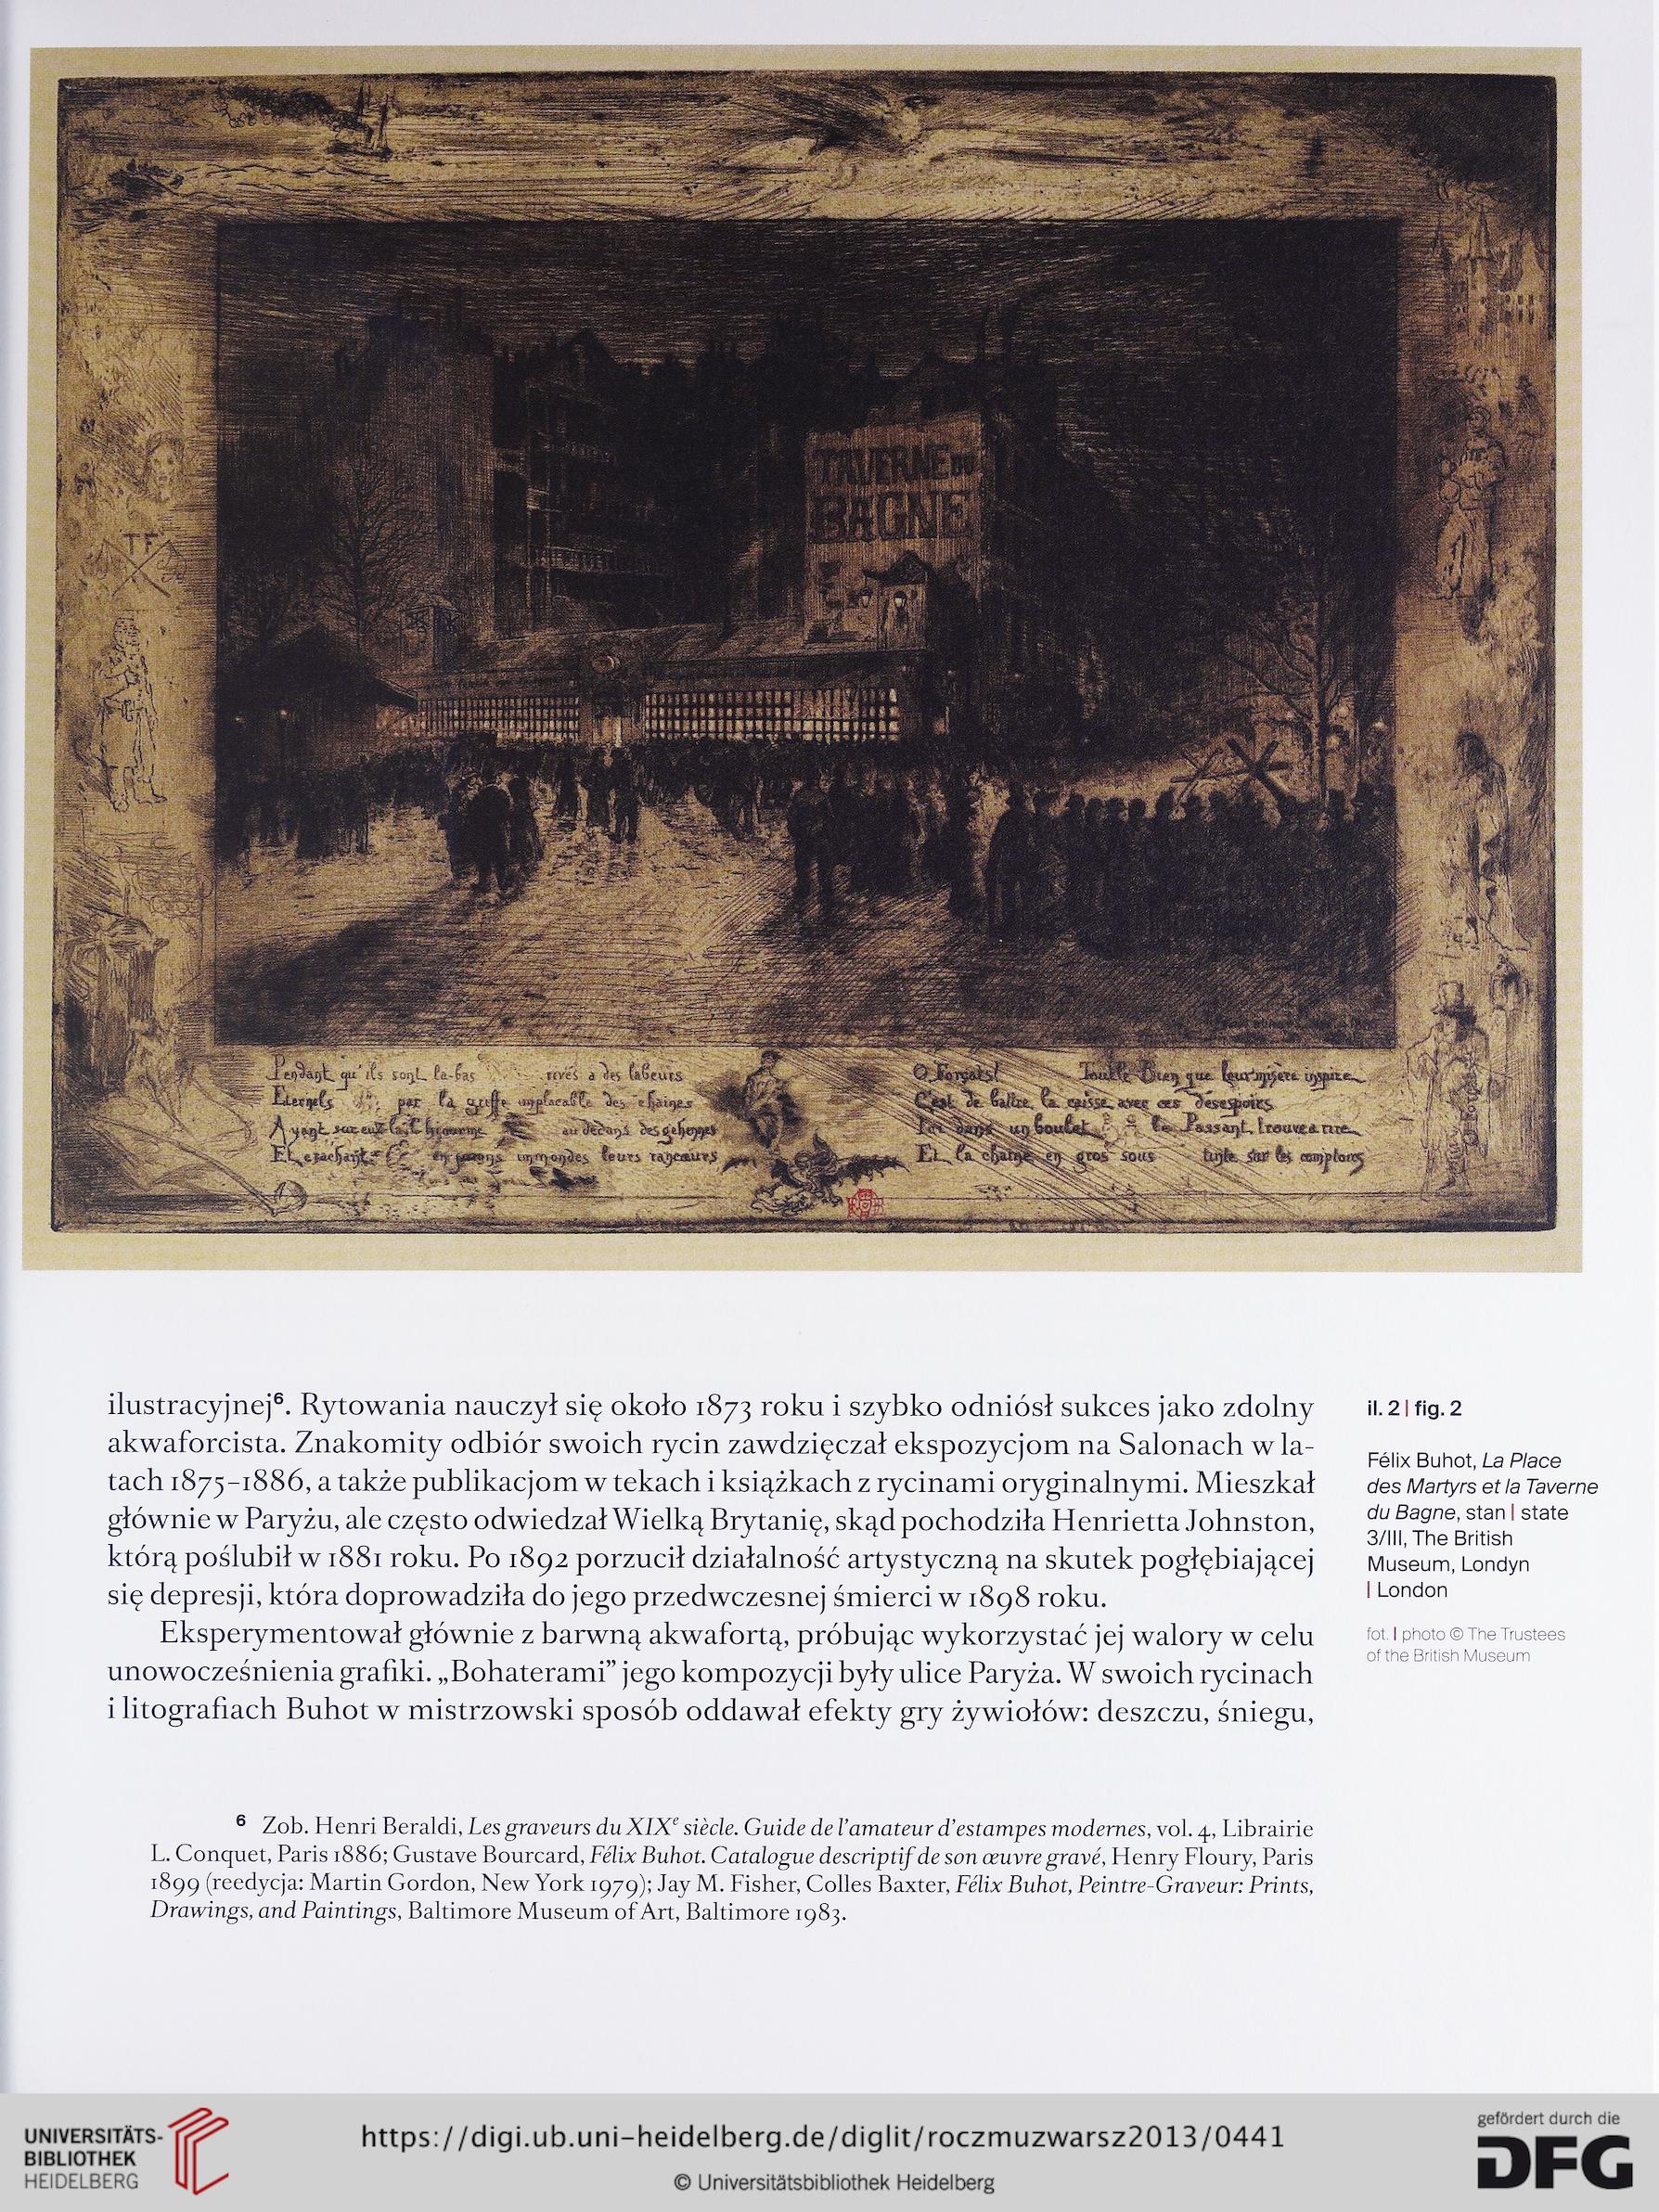 TAVERNE DU
BAGNE
TF
Pendant qu'ils sont la-bas rivés a des labeurs
Eternels par la griffe implacable des chaines
Ayant sur eux la Chiourme au dedans des gehennes
Et crachant en jurons immondes leurs rancœurs
O Forçats! Tout le Bien que leur misère inspire
C'est de battre la caisse avec ces désespoirs
dans un boulet le Passant trouve a rire
Et la chaine en gros sous tinte sur les comptoirs
ilustracyjnej⁶. Rytowania nauczył się około 1873 roku i szybko odniósł sukces jako zdolny
akwaforcista. Znakomity odbiór swoich rycin zawdzięczał ekspozycjom na Salonach w la-
tach 1875–1886, a także publikacjom w tekach i książkach z rycinami oryginalnymi. Mieszkał
głównie w Paryżu, ale często odwiedzał Wielką Brytanię, skąd pochodziła Henrietta Johnston,
którą poślubił w 1881 roku. Po 1892 porzucił działalność artystyczną na skutek pogłębiającej
się depresji, która doprowadziła do jego przedwczesnej śmierci w 1898 roku.
Eksperymentował głównie z barwną akwafortą, próbując wykorzystać jej walory w celu
unowocześnienia grafiki. „Bohaterami” jego kompozycji były ulice Paryża. W swoich rycinach
i litografiach Buhot w mistrzowski sposób oddawał efekty gry żywiołów: deszczu, śniegu,
il. 2 | fig. 2
Félix Buhot, La Place
des Martyrs et la Taverne
du Bagne, stan | state
3/III, The British
Museum, Londyn
| London
fot. | photo © The Trustees
of the British Museum
6 Zob. Henri Beraldi, Les graveurs du XIXᵉ siècle. Guide de l’amateur d’estampes modernes, vol. 4, Librairie
L. Conquet, Paris 1886; Gustave Bourcard, Félix Buhot. Catalogue descriptif de son œuvre gravé, Henry Floury, Paris
1899 (reedycja: Martin Gordon, New York 1979); Jay M. Fisher, Colles Baxter, Félix Buhot, Peintre-Graveur: Prints,
Drawings, and Paintings, Baltimore Museum of Art, Baltimore 1983.
UNIVERSITÄTS-
BIBLIOTHEK
HEIDELBERG
https://digi.ub.uni-heidelberg.de/diglit/roczmuzwarsz2013/0441
© Universitätsbibliothek Heidelberg
gefördert durch die
DFG